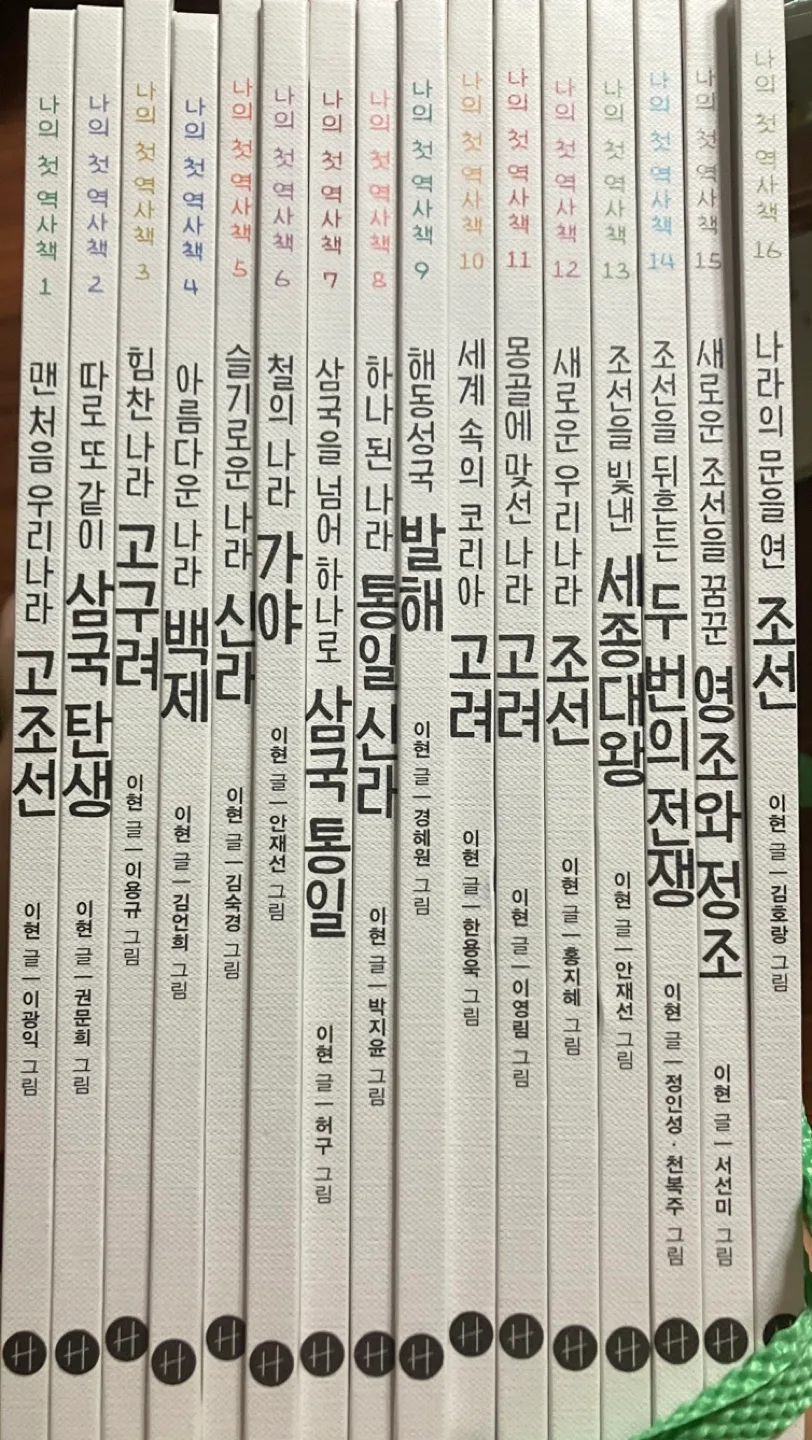 나의 첫 역사책 1 맨 처음 우리나라 고조선 이현 글 | 이광익 그림
나의 첫 역사책 2 따로 또 같이 삼국 탄생 이현 글 | 권문희 그림
나의 첫 역사책 3 힘찬 나라 고구려 이현 글 | 이용규 그림
나의 첫 역사책 4 아름다운 나라 백제 이현 글 | 김언희 그림
나의 첫 역사책 5 슬기로운 나라 신라 이현 글 | 김숙경 그림
나의 첫 역사책 6 철의 나라 가야 이현 글 | 안재선 그림
나의 첫 역사책 7 삼국을 넘어 하나로 삼국 통일 이현 글 | 허구 그림
나의 첫 역사책 8 하나 된 나라 통일 신라 이현 글 | 박지윤 그림
나의 첫 역사책 9 해동성국 발해 이현 글 | 경혜원 그림
나의 첫 역사책 10 세계 속의 코리아 고려 이현 글 | 한용욱 그림
나의 첫 역사책 11 몽골에 맞선 나라 고려 이현 글 | 이영림 그림
나의 첫 역사책 12 새로운 우리나라 조선 이현 글 | 홍지혜 그림
나의 첫 역사책 13 조선을 빛낸 세종대왕 이현 글 | 안재선 그림
나의 첫 역사책 14 조선을 뒤흔든 두 번의 전쟁 이현 글 | 정인성·천복주 그림
나의 첫 역사책 15 새로운 조선을 꿈꾼 영조와 정조 이현 글 | 서선미 그림
나의 첫 역사책 16 나라의 문을 연 조선 이현 글 | 김호랑 그림